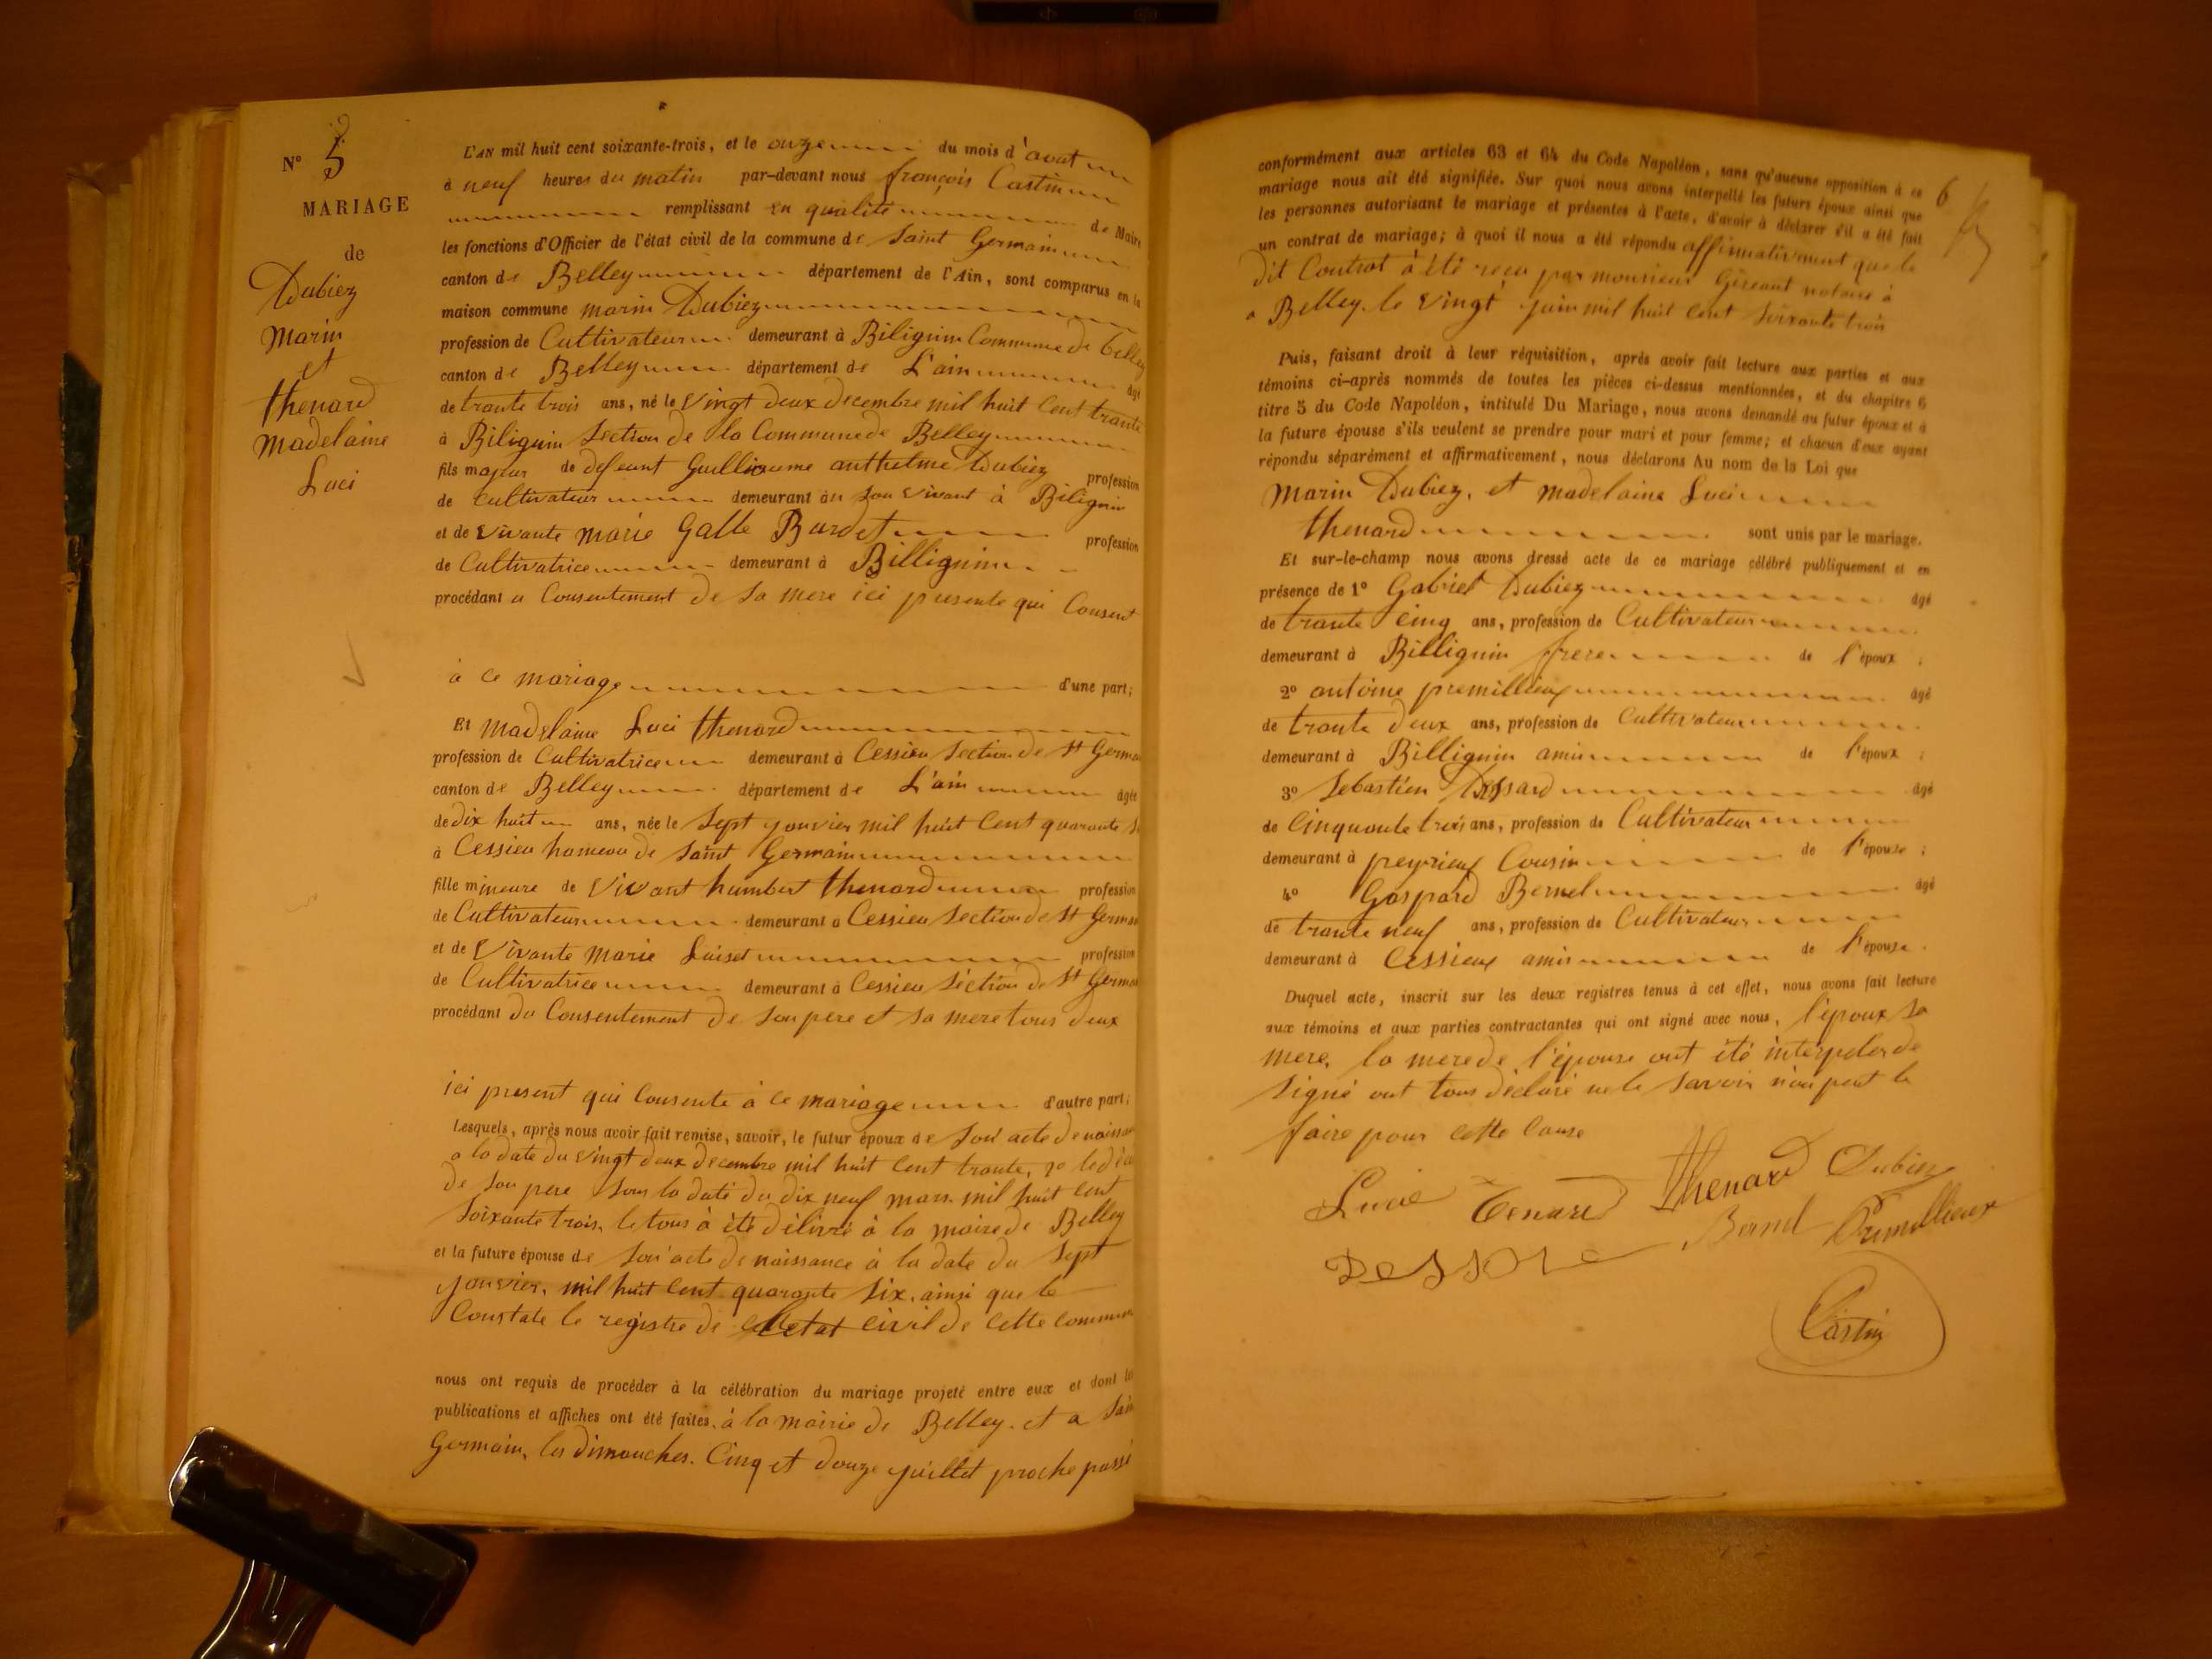 N° 5
MARIAGE
de
Dubiez
Marin
et
thenard
Madelaine
Luci
L'AN mil huit cent soixante-trois, et le onze du mois d'aout
à neuf heures du matin par-devant nous françois Castin
remplissant en qualité de Maire
les fonctions d'Officier de l'état civil de la commune de Saint Germain
canton de Belley département de l'Ain, sont comparus en la
maison commune marin Dubiez
profession de Cultivateur demeurant à Biliguin Commune de belley
canton de Belley département de L'ain âgé
de trante trois ans, né le Vingt deux decembre mil huit Cent trante
à Biliguin Section de la Commune de Belley
fils majeur de defeunt Guilliaume anthelme Dubiez profession
de Cultivateur demeurant au Son Vivant à Biliguin
et de Vivante marie Galle Burdet profession
de Cultivatrice demeurant à Billiguin
procédant a Consentement de Sa mere ici presente qui Consent
à ce mariage d'une part;
Et madelaine Luci thenard
profession de Cultivatrice demeurant à Cessieu Section de St Germa
canton de Belley département de L'ain âgée
de dix huit ans, née le Sept janvier mil huit Cent quarante S
à Cessieu hameau de Saint Germain
fille mineure de Vivant humbert thenard profession
de Cultivateur demeurant a Cessieu Section de St Germa
et de Vivante marie Luiset profession
de Cultivatrice demeurant à Cessieu Séction de St Germa
procédant du Consentement de Son pere et Sa mere tous deux
ici present qui Consente à ce mariage d'autre part;
Lesquels, après nous avoir fait remise, savoir, le futur époux de Son acte de naissan
a la date du Vingt deux decembre mil huit Cent trante, 2e le déce
de Son pere Sous la date du dix neuf mars mil huit Cent
Soixante trois, le tous à été délivré à la maire de Belley
et la future épouse de Son acte de naissance à la date du Sept
janvier, mil huit Cent quarante Six, ainsi que le
Constate le registre de letat civil de Cette commun
nous ont requis de procéder à la célébration du mariage projeté entre eux et dont les
publications et affiches ont été faites, à la mairie de Belley et a Sain
Germain, les dimanches Cinq et douze juillet proche passé
6
conformément aux articles 63 et 64 du Code Napoléon, sans qu'aucune opposition à ce
mariage nous ait été signifiée. Sur quoi nous avons interpellé les futurs époux ainsi que
les personnes autorisant le mariage et présentes à l'acte, d'avoir à déclarer s'il a été fait
un contrat de mariage; à quoi il nous a été répondu affirmativement que le
dit Contrat à été recu par monsieur notaire à
a Belley le Vingt juin mil huit Cent Soixante trois
Puis, faisant droit à leur réquisition, après avoir fait lecture aux parties et aux
témoins ci-après nommés de toutes les pièces ci-dessus mentionnées, et du chapitre 6
titre 5 du Code Napoléon, intitulé Du Mariage, nous avons demandé au futur époux et à
la future épouse s'ils veulent se prendre pour mari et pour femme; et chacun d'eux ayant
répondu séparément et affirmativement, nous déclarons Au nom de la Loi que
Marin Dubiez, et madelaine Luci
thenard sont unis par le mariage.
Et sur-le-champ nous avons dressé acte de ce mariage célébré publiquement et en
présence de 1° Gabriel Dubiez âgé
de trante Cinq ans, profession de Cultivateur
demeurant à Billiguin frere de l'époux ;
2° antoine premillieux âgé
de trante deux ans, profession de Cultivateur
demeurant à Billiguin amis de l'époux ;
3° Sebastien Dessard âgé
de Cinquante trois ans, profession de Cultivateur
demeurant à peyrieux Cousin de l'épouse ;
4° Gaspard Bernel âgé
de trante neuf ans, profession de Cultivateur
demeurant à Cessieux amis de l'épouse.
Duquel acte, inscrit sur les deux registres tenus à cet effet, nous avons fait lecture
aux témoins et aux parties contractantes qui ont signé avec nous, l'époux Sa
mere, la mere de l'épouse ont été interpeler de
Signé ont tous déclaré ne le Savoir n'on peut le
faire pour Cette Cause
Lucie Tenard Thenard Dubiez
Premillieux
Castin